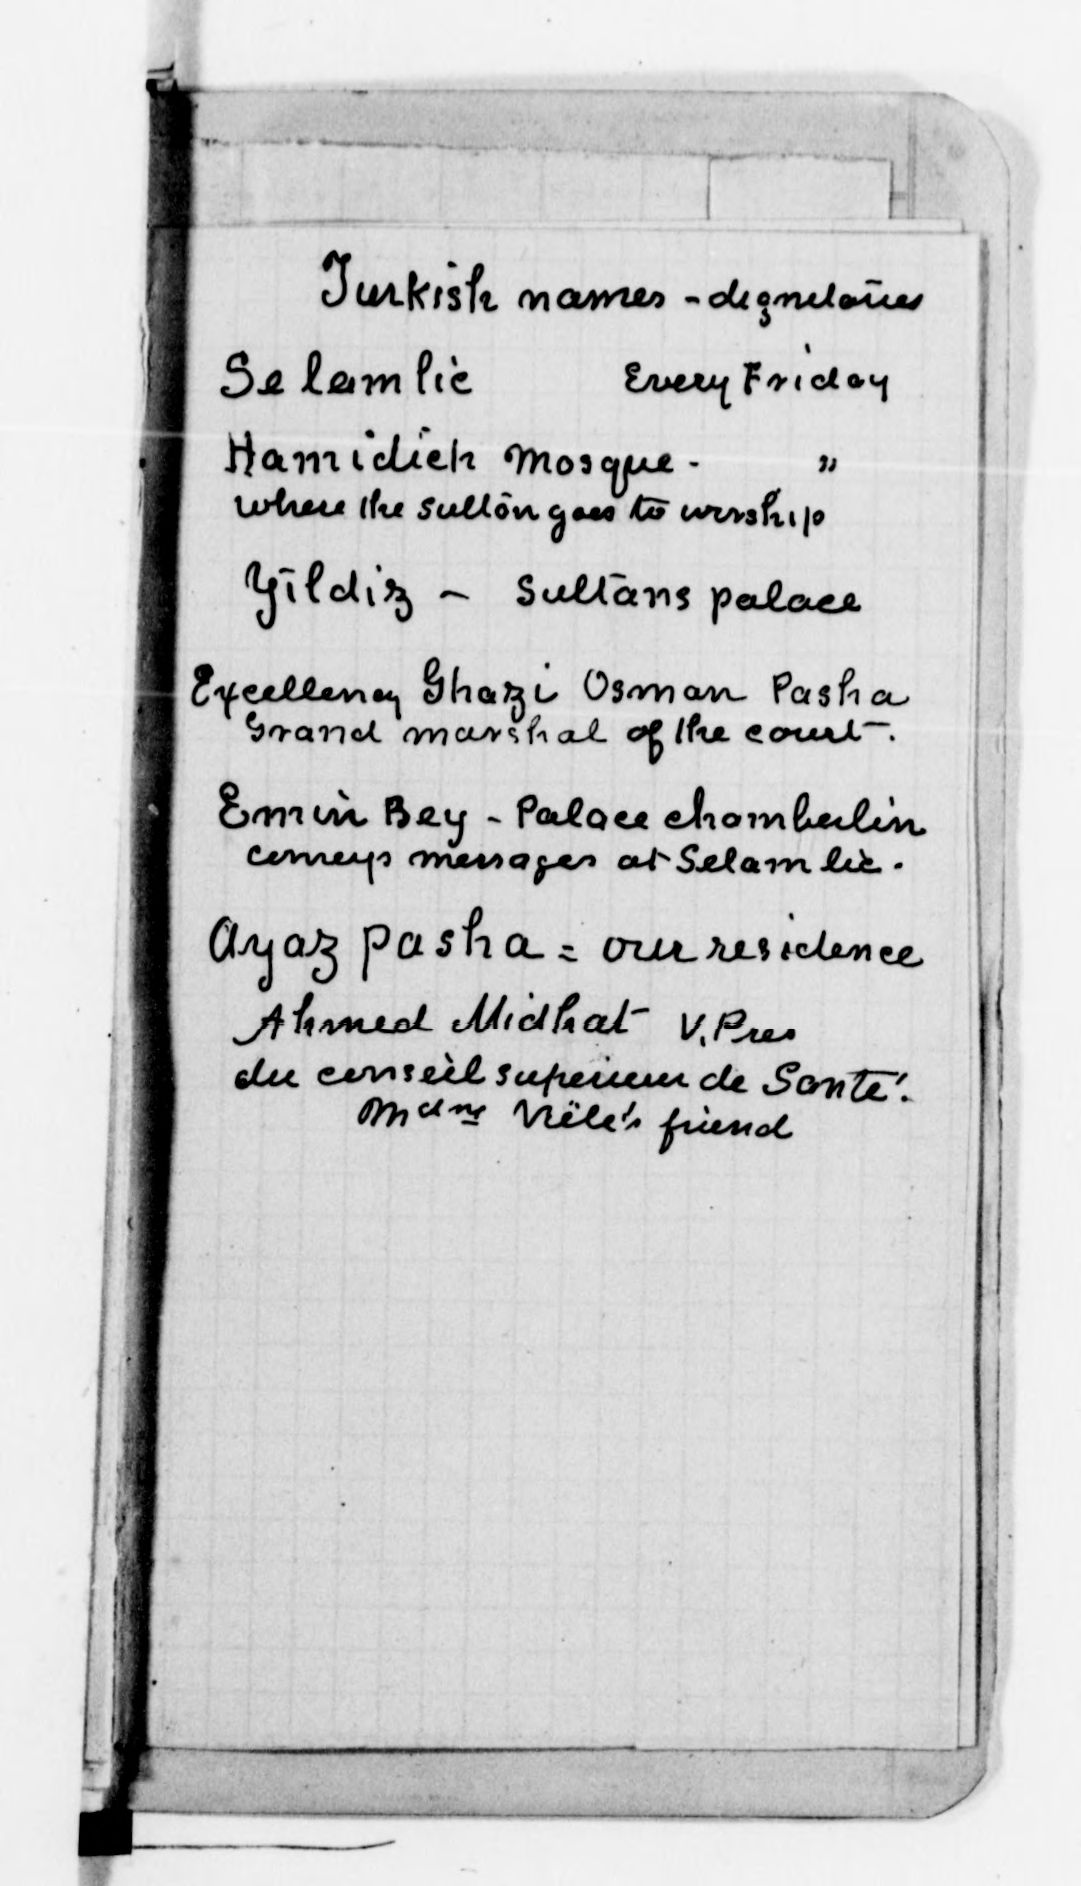 Turkish names - dignitaries
Selamlic Every Friday
Hamidieh Mosque - "
where the sultan goes to worship
Yildiz - Sultans palace
Excellency Ghazi Osman Pasha
Grand marshal of the court.
Emin Bey - Palace chamberlin
conveys messages at Selamlic.
Ayaz pasha = our residence
Ahmed Midhat V. Pres
du conseil superieur de Santé.
Mdme friend